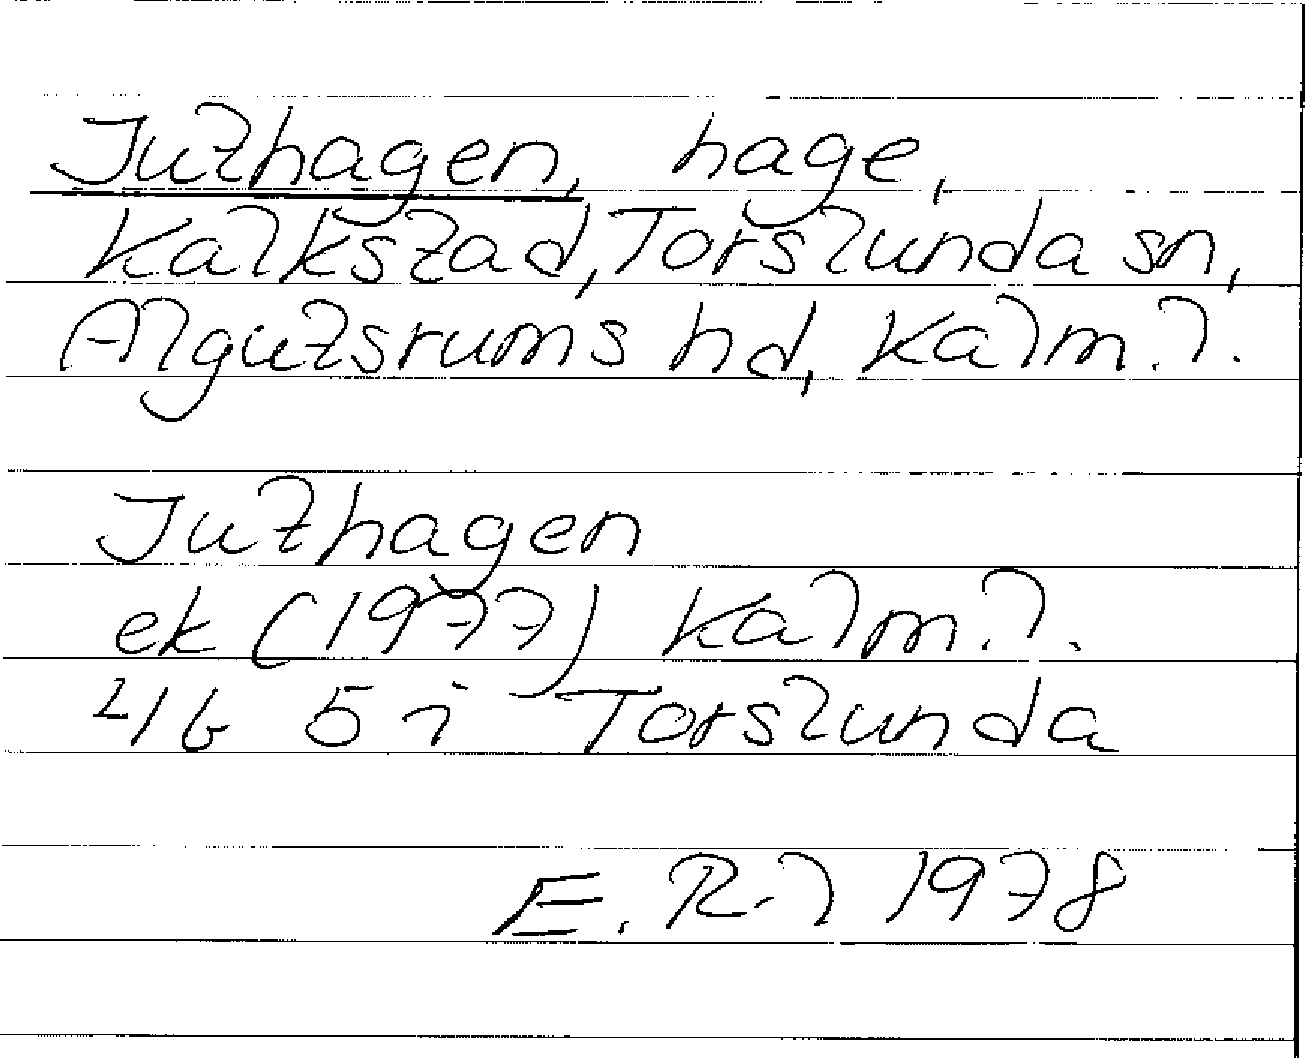 Juthagen, hage,
Kalkstad, Torslunda sn,
Algutsrums hd, Kalm. l.
Juthagen
ek (1977) Kalm. l.
4G 5 i Torslunda
E. R-l 1978